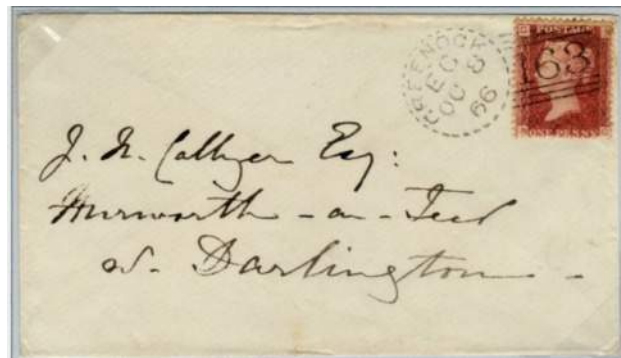 GREENOCK
EC
OC 8
66
163
POSTAGE
ONE PENNY
J. N. Esq:
Hurworth - on - Tees
Darlington